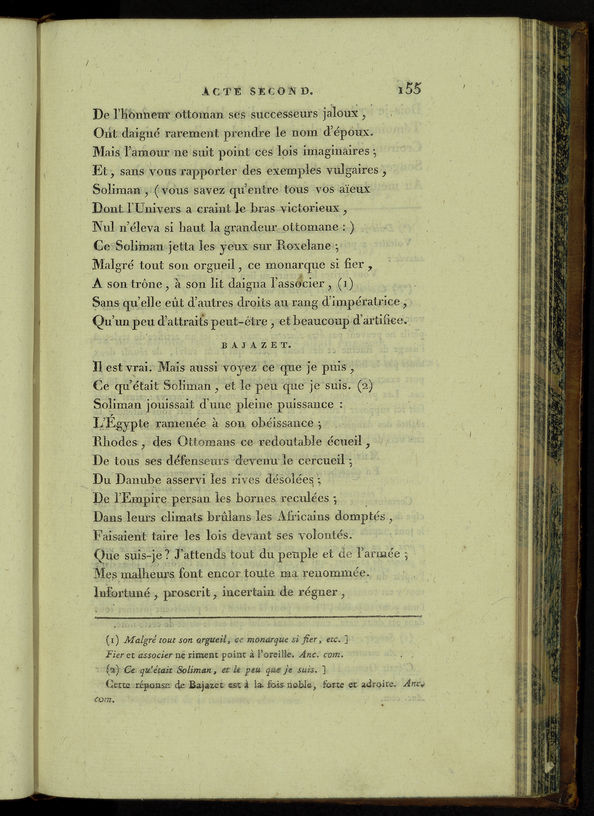 ACTE SECOND. 155
De l'honneur ottoman ses successeurs jaloux ,
Ont daigné rarement prendre le nom d'époux.
Mais l'amour ne suit point ces lois imaginaires ;
Et , sans vous rapporter des exemples vulgaires ,
Soliman , ( vous savez qu'entre tous vos aïeux
Dont l'Univers a craint le bras victorieux ,
Nul n'éleva si haut la grandeur ottomane : )
Ce Soliman jetta les yeux sur Roxelane ;
Malgré tout son orgueil , ce monarque si fier ,
A son trône , à son lit daigna l'associer , (1)
Sans qu'elle eût d'autres droits au rang d'impératrice ,
Qu'un peu d'attraits peut-être , et beaucoup d'artifice.
BAJAZET.
Il est vrai. Mais aussi voyez ce que je puis ,
Ce qu'était Soliman , et le peu que je suis. (2)
Soliman jouissait d'une pleine puissance :
L'Égypte ramenée à son obéissance ;
Rhodes , des Ottomans ce redoutable écueil ,
De tous ses défenseurs devenu le cercueil ;
Du Danube asservi les rives désolées ;
De l'Empire persan les bornes reculées ;
Dans leurs climats brûlans les Africains domptés ,
Faisaient taire les lois devant ses volontés.
Que suis-je ? J'attends tout du peuple et de l'armée ;
Mes malheurs font encor toute ma renommée.
Infortuné , proscrit , incertain de régner ,
(1) Malgré tout son orgueil, ce monarque si fier, etc. ]
Fier et associer ne riment point à l'oreille. Anc. com.
(2) Ce qu'était Soliman, et le peu que je suis. ]
Cette réponse de Bajazet est à la fois noble, forte et adroite. Anc.
com.